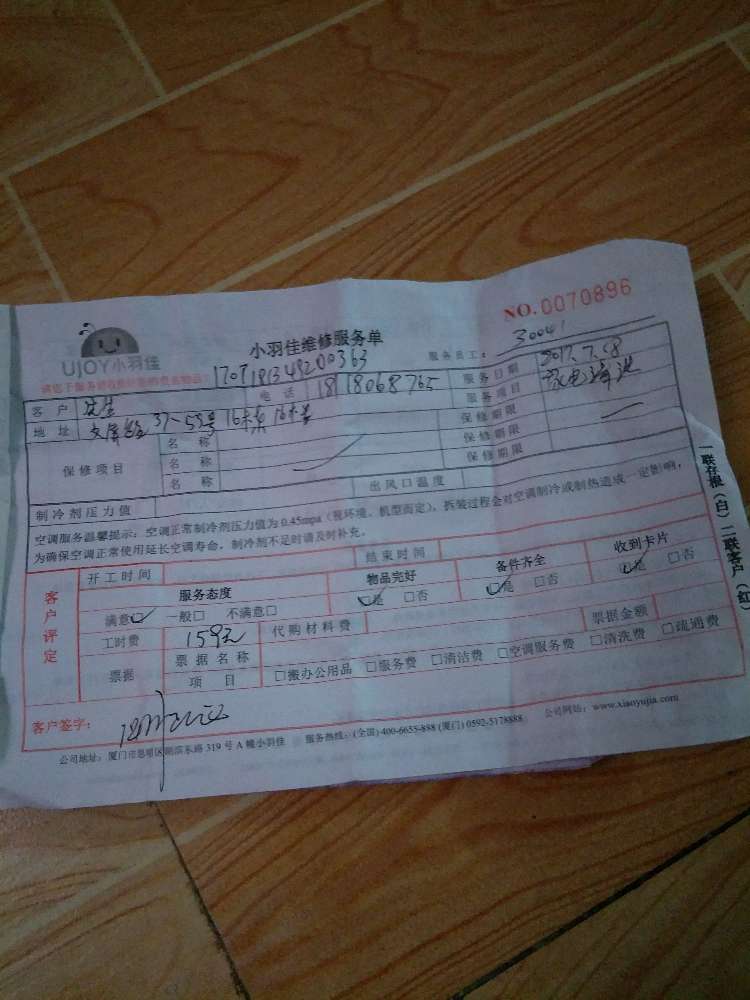 NO.0070896
UJOY小羽佳
小羽佳维修服务单
服务员工: 30041
1707181349200363
客户 电话 18118068765 服务日期 2017.7.18
地址 37-53号 服务项目 家电清洗
保修项目 名称 保修期限
名称 保修期限
名称 保修期限
制冷剂压力值 出风口温度
空调服务温馨提示: 空调正常制冷剂压力值为 0.45mpa (视环境、机型而定), 拆装过程会对空调制冷或制热造成一定影响,
为确保空调正常使用延长空调寿命, 制冷剂不足时请及时补充。
客户评定
开工时间 结束时间
服务态度 物品完好 备件齐全 收到卡片
满意☑ 一般□ 不满意□ ☑是 □否 ☑是 □否 ☑是 □否
工时费 159元 代购材料费
票据 票据名称 票据金额
项目 □搬办公用品 □服务费 □清洁费 □空调服务费 □清洗费 □疏通费
客户签字:
公司地址: 厦门市思明区湖滨东路 319 号 A 幢小羽佳 服务热线: (全国) 400-6655-888 (厦门) 0592-5178888 公司网站: www.xiaoyujia.com
一联存根(白) 二联客户(红)